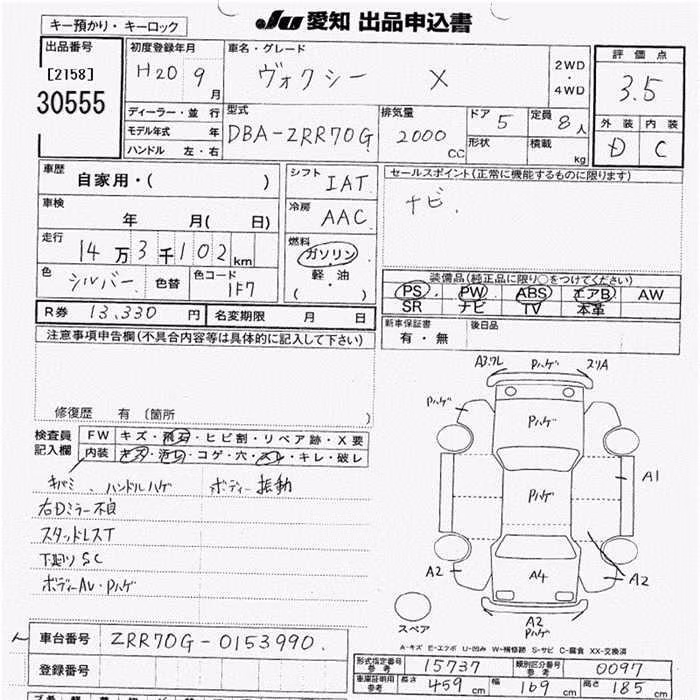 キー預かり・キーロック
JU 愛知 出品申込書
出品番号
[2158]
30555
初度登録年月
H20 9月
車名・グレード
ヴォクシー X
2WD
・
4WD
評価点
3.5
外装 内装
D C
ディーラー・並行
モデル年式 年
ハンドル 左・右
型式
DBA-ZRR70G
排気量
2000cc
ドア 5
定員 8人
形状
積載 kg
車歴
自家用・( )
車検
年 月( 日)
走行
14万3千102km
色 シルバー 色替
色コード 1F7
シフト IAT
冷房 AAC
燃料
ガソリン
軽・油
( )
セールスポイント(正常に機能するものに限ります)
ナビ.
装備品(純正品に限り○をつけてください)
PS PW ABS エアB AW
SR ナビ TV 本革
R券 13,330円
名変期限 月 日
新車保証書
有・無
後日品
注意事項申告欄(不具合内容等は具体的に記入して下さい)
修復歴 有 〔箇所 〕
検査員
記入欄
FW キズ・飛石・ヒビ割・リペア跡・X要
内装 キズ・汚レ・コゲ・穴・スレ・キレ・破レ
ハンドルハゲ ボディー振動
右Dミラー不良
スタッドレスT
下廻りSC
ボディーAU・Pハゲ
A3.フL
Pハゲ
スリA
Pハゲ
Pハゲ
Pハゲ
A1
A2
A4
A2
A2
Pハゲ
スペア
A-キズ E-エクボ U-凹み W-補修跡 S-サビ C-腐食 XX-交換済
車台番号 ZRR70G-0153990.
登録番号
形式指定番号
参考
15737
類別区分番号
参考
0097
車庫証明用
参考
長さ 459cm
幅 169cm
高さ 185cm